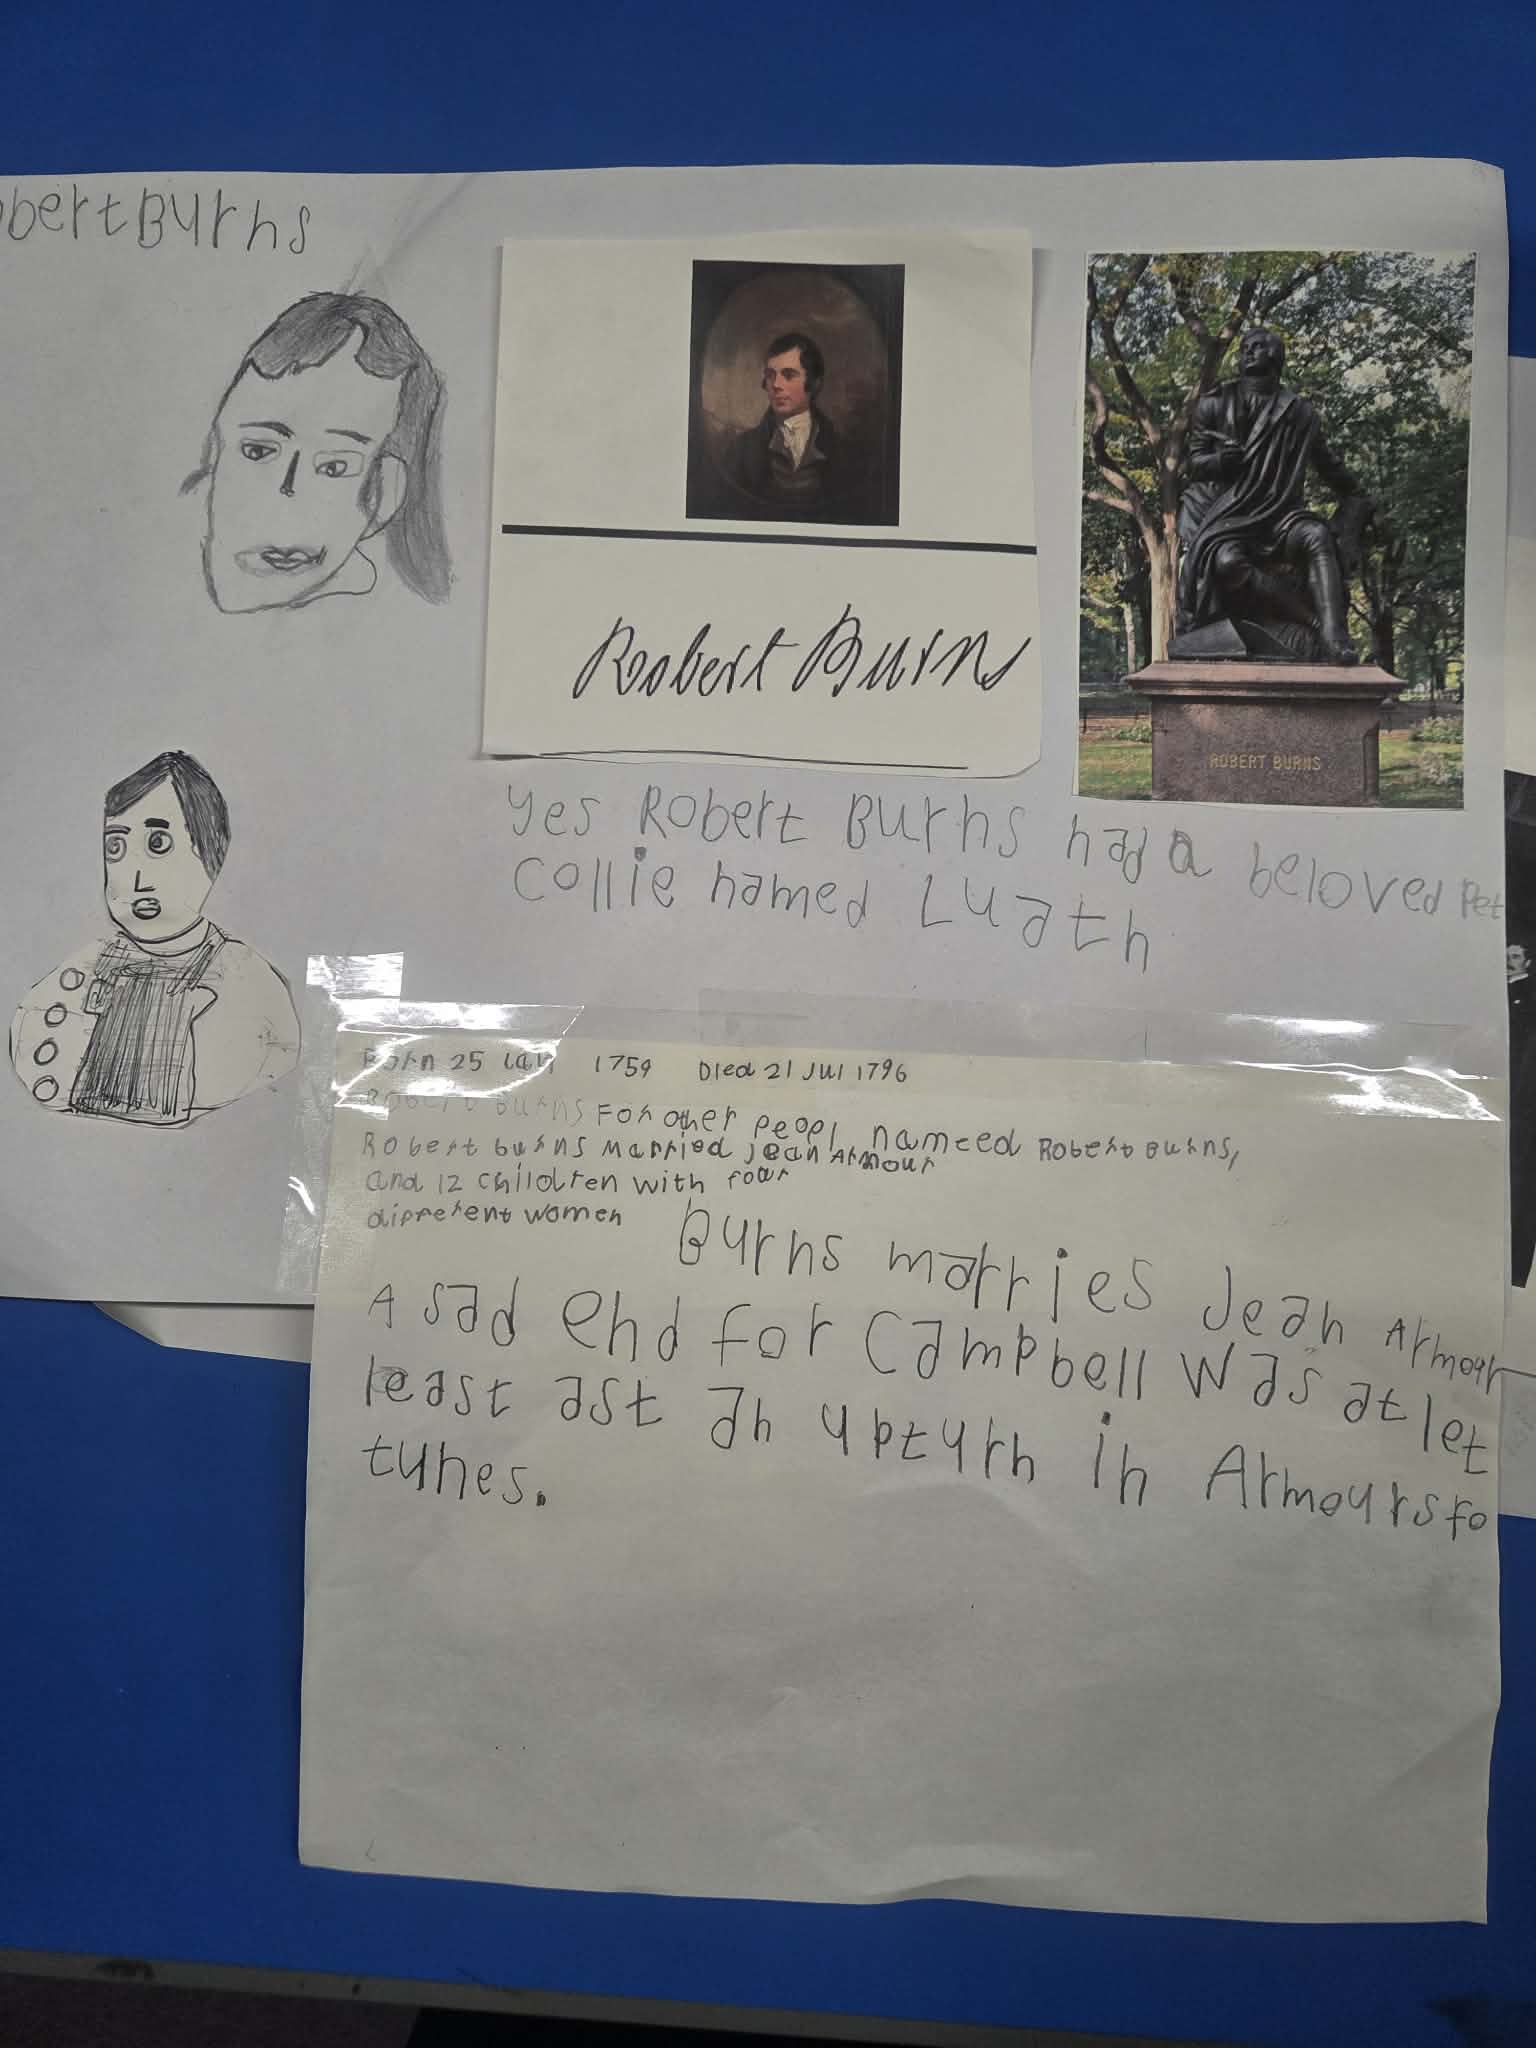 obertBurns
Robert Burns
ROBERT BURNS
Yes Robert Burns had a beloved Pet
Collie named Luath
Born 25 Jan 1759 Died 21 Jul 1796
Robert Burns For other peopl nameed Robert Burns,
Robert burns married Jean Armour
and 12 children with four
different women
Burns marries Jean Armour
A sad end for Campbell was at let
least ast an upturn in Armours fo
tunes.